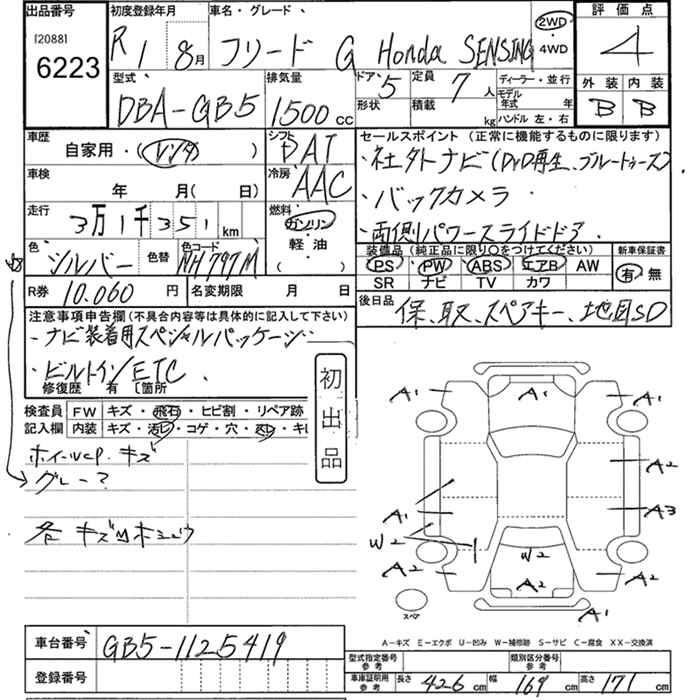 出品番号
[20881]
6223
初度登録年月
R1 8月
車名・グレード
フリード G Honda SENSING
2WD
・4WD
評価点
4
外装 内装
B B
型式
DBA-GB5
排気量
1500cc
ドア 5
形状
定員 7人
積載 kg
ディーラー・並行
モデル年式 年
ハンドル 左・右
車歴
自家用・(レンタ)
シフト
DAT
冷房
AAC
車検
年 月(日)
走行
3万1千351km
燃料
ガソリン
軽・油
( )
色
シルバー
色替
色コード
NH797M
R券 10.060円
名変期限 月 日
セールスポイント (正常に機能するものに限ります)
・社外ナビ(DVD再生、ブルートゥース)
・バックカメラ
・両側パワースライドドア.
装備品(純正品に限り○をつけてください)
PS PW ABS エアB AW
SR ナビ TV カワ
新車保証書
有 無
後日品
保、取、スペアキー、地図SD
注意事項申告欄(不具合内容等は具体的に記入して下さい)
・ナビ装着用スペシャルパッケージ
・ビルトインETC.
修復歴 有 [箇所
初出品
検査員記入欄
FW キズ・飛石・ヒビ割・リペア跡
内装 キズ・汚レ・コゲ・穴・スレ・キレ
ホイールcp. キズ
グレー?
各 キズ
A1 A1 A1
A2
A3
A1
W2
W2
A2 A2 A2
A1
スペア
A-キズ E-エクボ U-凹み W-補修跡 S-サビ C-腐食 XX-交換済
車台番号 GB5-1125419
登録番号
型式指定番号 参考
類別区分番号 参考
車庫証明用参考 長さ 426cm 幅 169cm 高さ 171cm